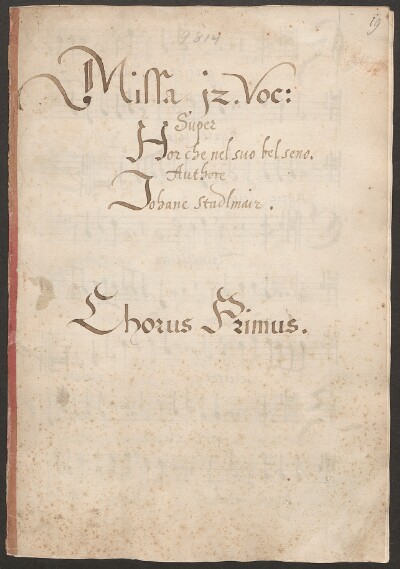 19
9814
Missa jz. Voc:
Super
Hor che nel suo bel seno.
Authore
Johane Stadlmair.
Chorus Primus.